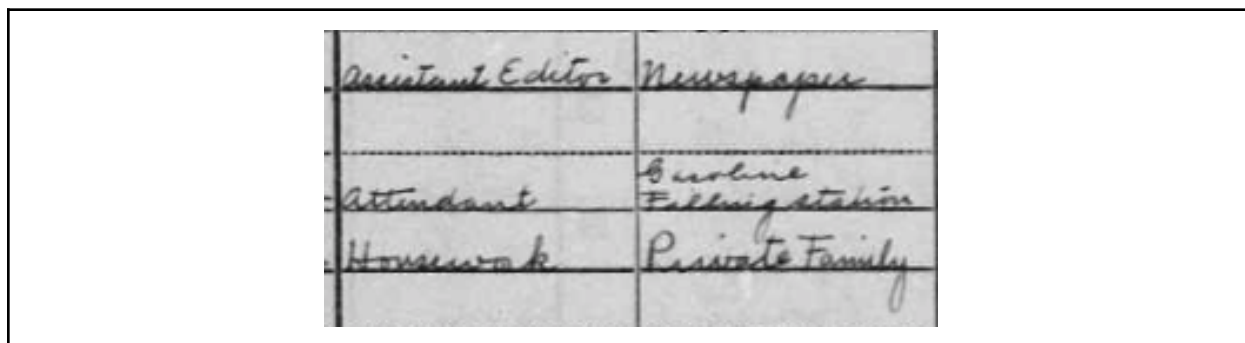 Assistant Editor Newspaper
Gasoline
Attendant Filling station
Housework Private Family